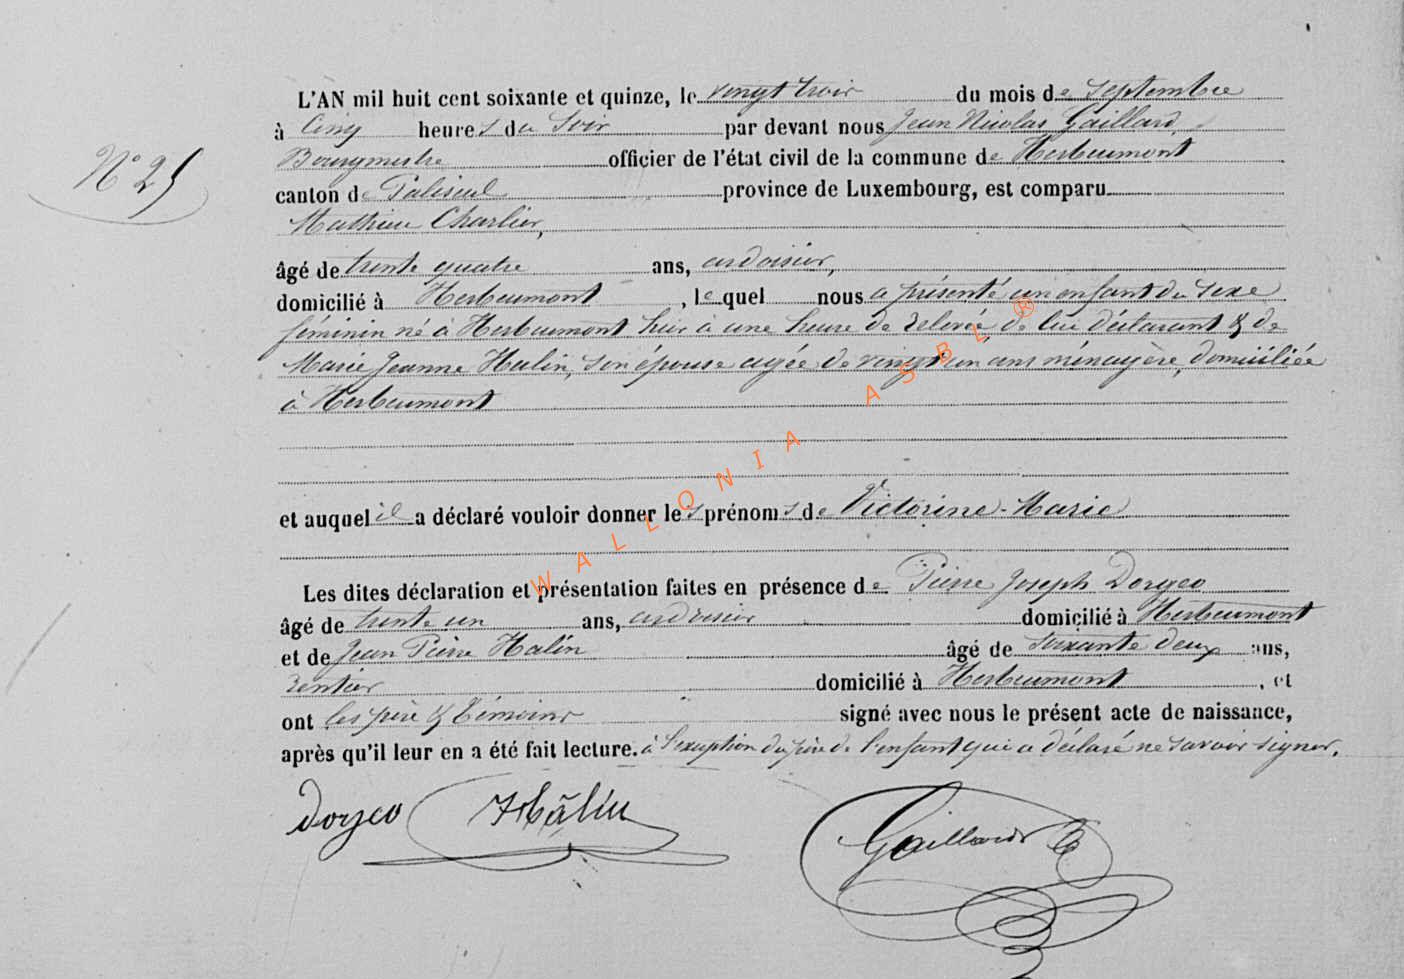 L'AN mil huit cent soixante et quinze, le vingt trois du mois de Septembre
à cinq heures du Soir par devant nous Jean Nicolas Gaillard,
N° 25
Bourgmestre officier de l'état civil de la commune de Herbeumont
canton de Paliseul province de Luxembourg, est comparu
Mathieu Charlier,
âgé de trente quatre ans, ardoisier,
domicilié à Herbeumont, lequel nous a présenté un enfant du sexe
féminin né à Herbeumont hier à une heure de relevée, de lui déclarant & de
Marie Jeanne Halin, son épouse agée de vingt un ans ménagère, domiciliée
à Herbeumont
et auquel il a déclaré vouloir donner les prénoms de Victorine-Marie
Les dites déclaration et présentation faites en présence de Pierre Joseph Dorgeo
âgé de trente un ans, ardoisier domicilié à Herbeumont
et de Jean Pierre Halin âgé de soixante deux ans,
rentier domicilié à Herbeumont, et
ont les père & témoins signé avec nous le présent acte de naissance,
après qu'il leur en a été fait lecture. à l'exception du père de l'enfant qui a déclaré ne savoir signer.
Dorgeo Halin Gaillard
WALLONIA ASBL ®